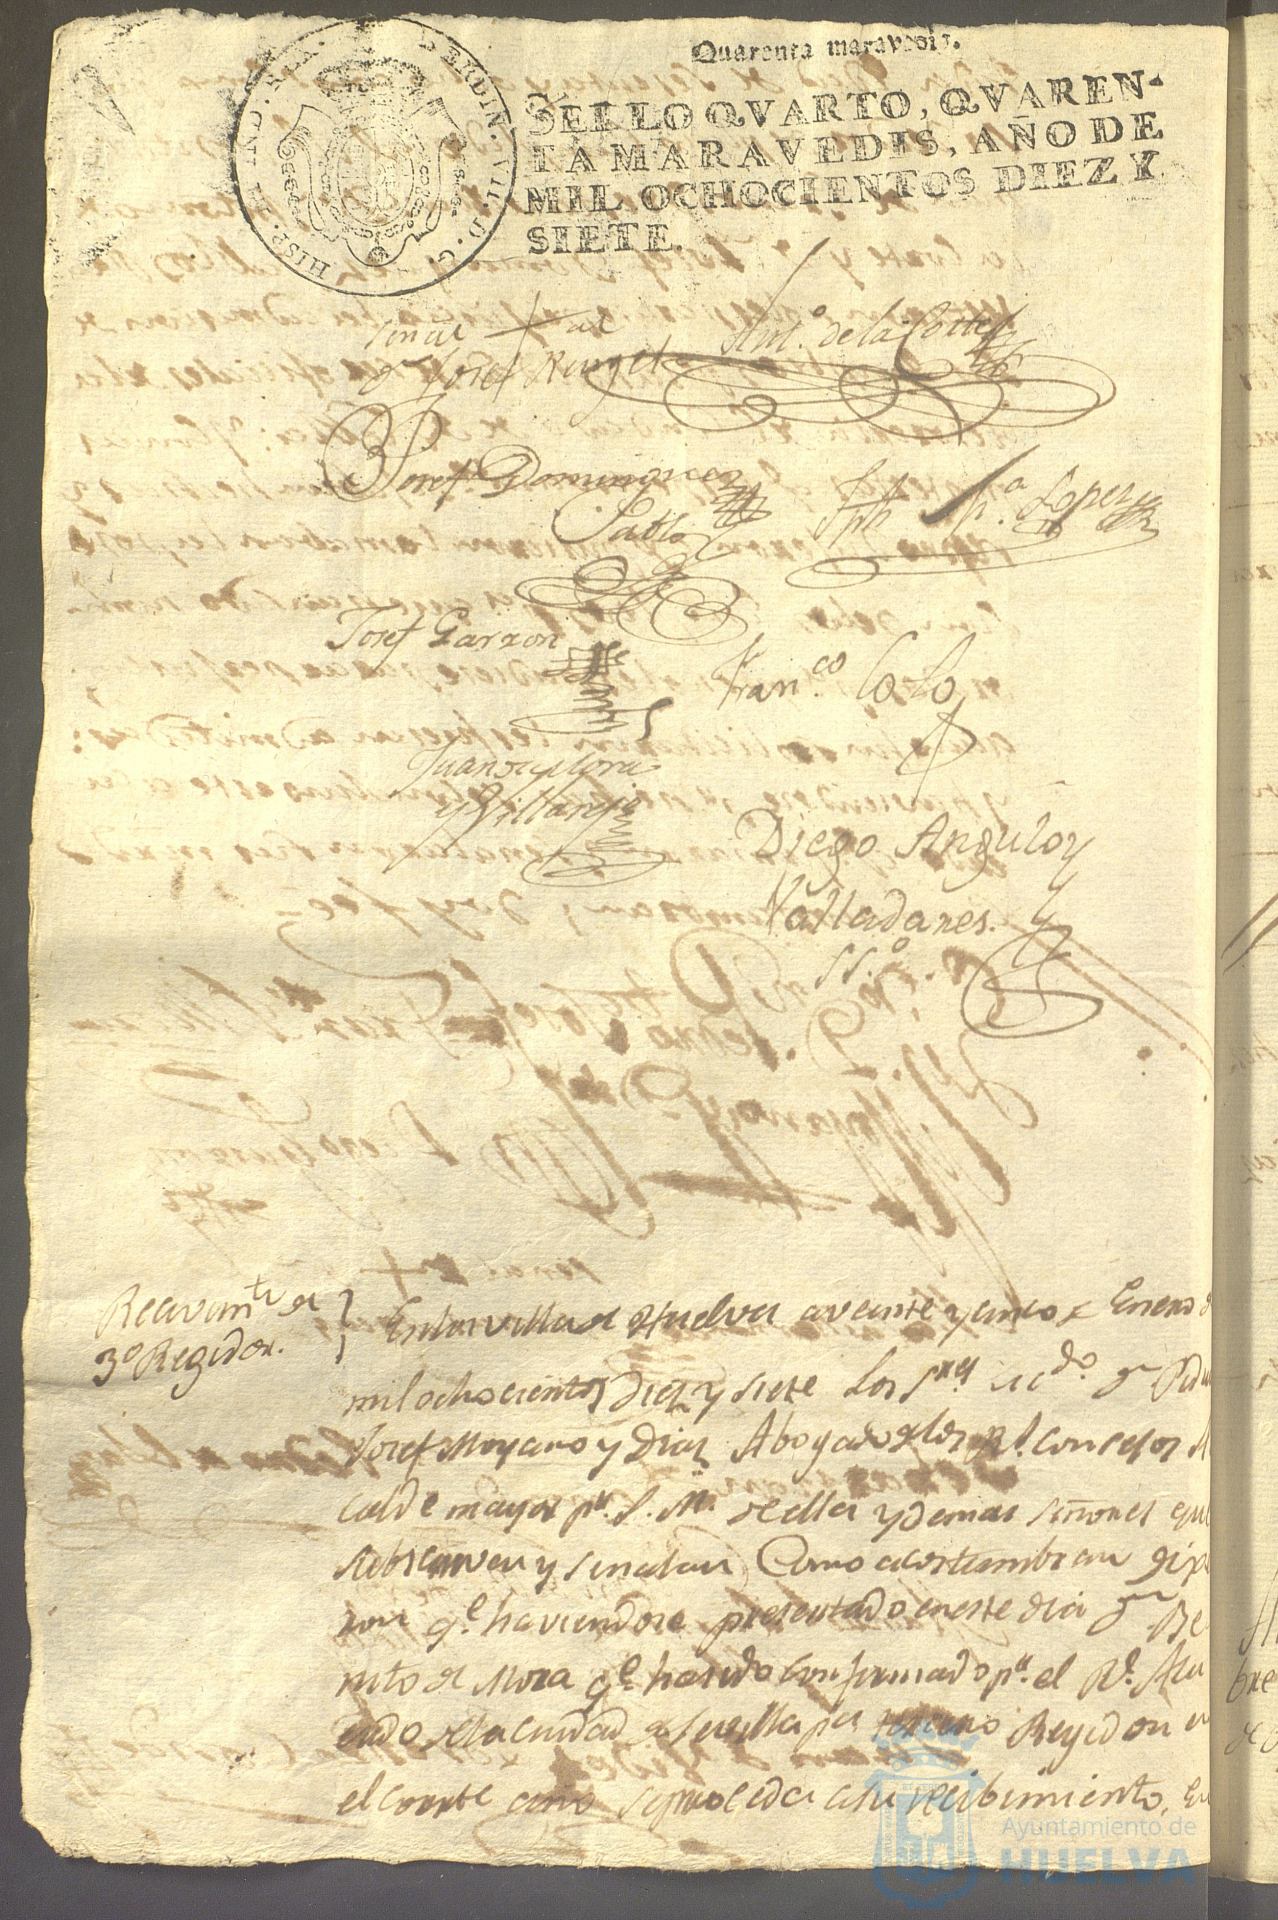 Quarenta maravedis.
SELLO QVARTO, QVAREN-
TA MARAVEDIS, AÑO DE
MIL OCHOCIENTOS DIEZ Y
SIETE.
HISP. ET IND. REX. FERDIN. VII. D. G.
señal + de
Josef Rangel
Ant.o de la Corte
Josef Dominguez
Pablo
Lopez
Josef Garzon
Fran.co Colo
Juan de Mora
y Villaseñ
Diego Angulo y
Valladares.
ss.o
Recivim.to de
3.o Regidor.
En la villa de Huelva a veinte y cinco de Enero d
mil ochocientos diez y siete los S.res Lic.do D.n Pedro
Josef Moyano y Diaz Abogado de los R.s Consejos Al
calde mayor p.r S. M. de ella y demas señores que
subscriven y señalan como acostumbran dixe
ron q.e haviendose presentado en este dia D.n Be
nito de Mora q.e ha sido confirmado p.r el R.l Acu
erdo de la ciudad de Sevilla por tercero Regidor en
el corr.te año se proceda a su recibimiento. En
Ayuntamiento de
HUELVA